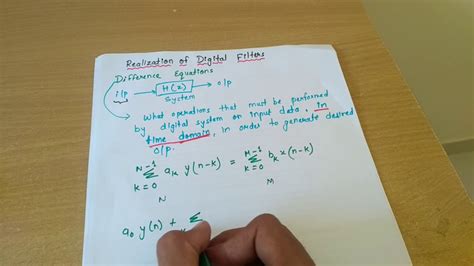 Realization of Digital Filters
Difference Equations
i/p → H(z) → o/p
System
→ What operations that must be performed
by digital system on input data, in
time domain, in order to generate desired
o/p.
N-1 Σ k=0 aₖ y(n-k) = M-1 Σ k=0 bₖ x(n-k)
N M
a₀ y(n) + Σ